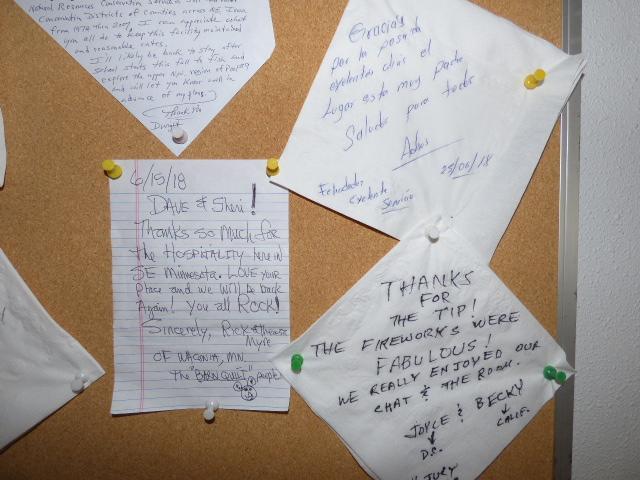 Natural Resources Conservation Service
Conservation Districts of counties across NE Iowa
from 1978 thru 2009. I can appreciate what
you all do to keep this facility maintained
and reasonable rates.
I'll likely be back to stay after
school starts this fall to fish and
explore the upper region of
and will let you know well in
advance of my plans.
Thank You
Dwight
Gracias
por la pasada
exelentes dias el
Lugar esta muy padre
Saludos para todos
Adios
25/06/18
Felicidades
exelente
Servicio
6/15/18
DAVE & Sheri!
Thanks so much for
the HOSPITALITY here in
SE Minnesota. LOVE your
place and we will be back
Again! You all ROCK!
Sincerely, Rick & Therese
Myre
OF WACONIA, MN.
The "BARN QUILT" people
THANKS
FOR
THE TIP!
THE FIREWORKS WERE
FABULOUS!
WE REALLY ENJOYED OUR
CHAT & THE ROOM.
JOYCE & BECKY
D.S. CALIF.
JURY